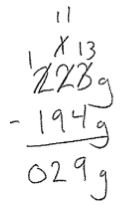 11
1 1 13
223g
- 194g
029g